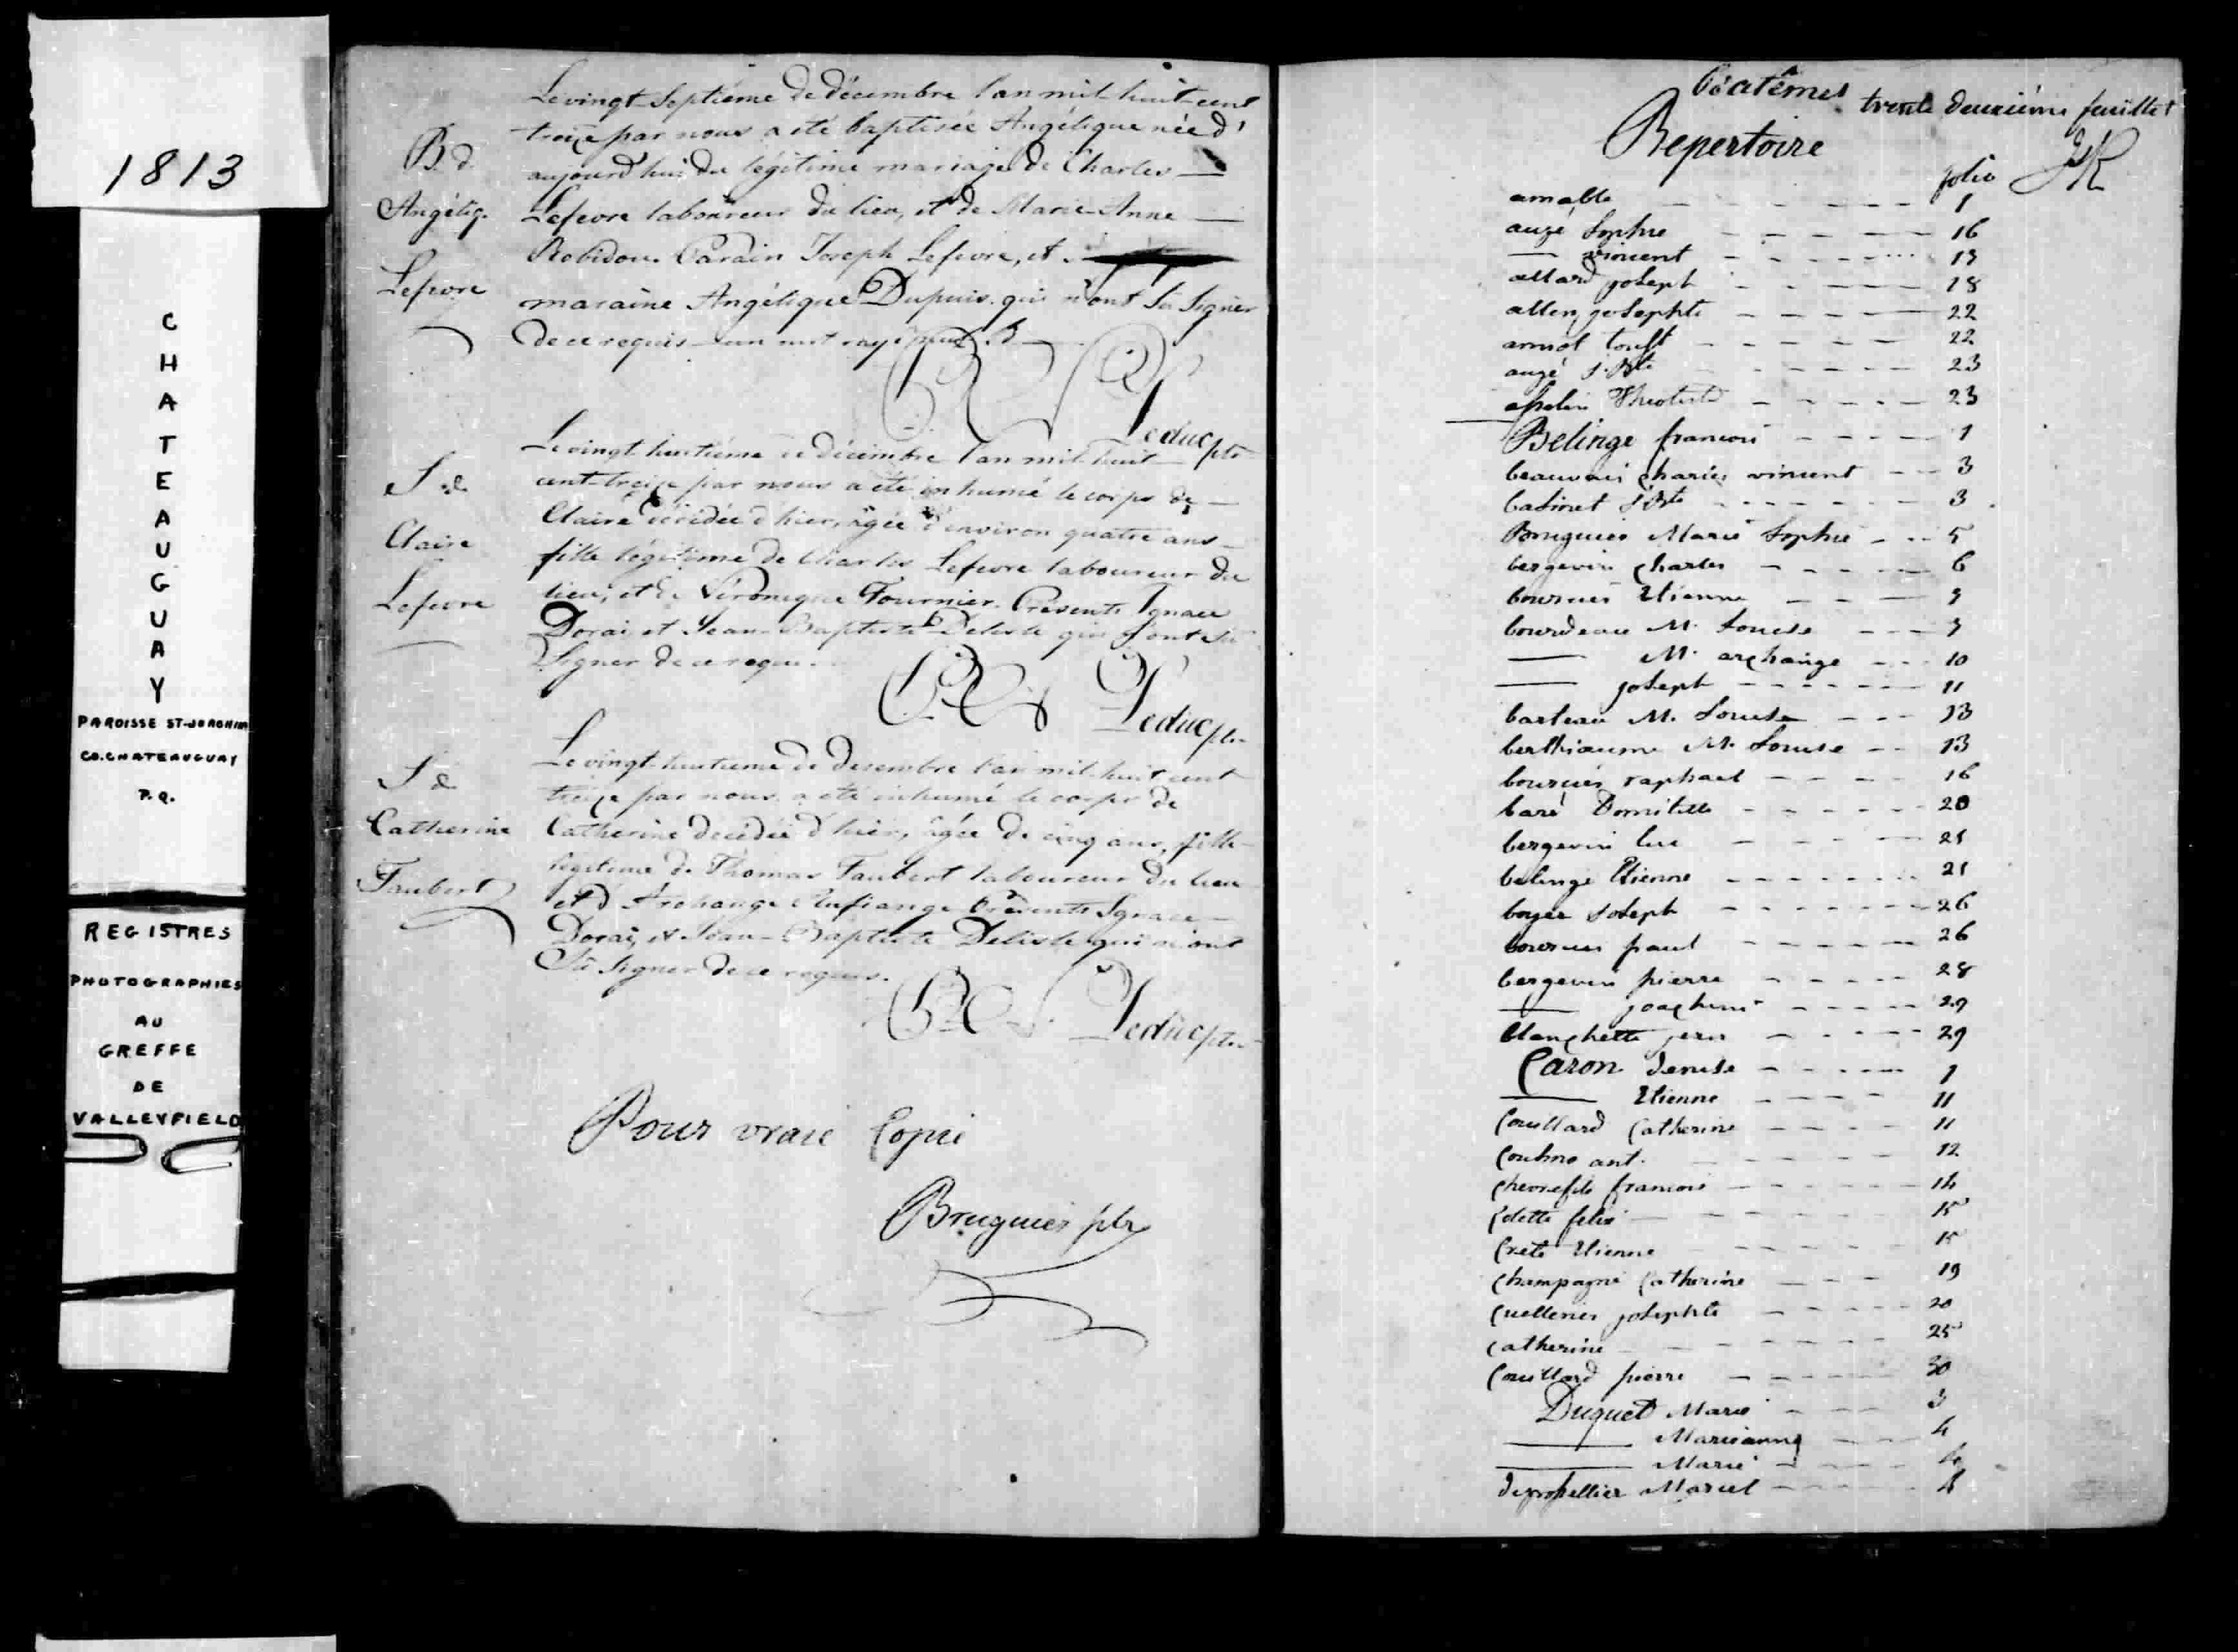 1813
CHATEAUGUAY
PAROISSE ST-JOACHIM
CO. CHATEAUGUAY
P.Q.
REGISTRES
PHOTOGRAPHIES
AU
GREFFE
DE
VALLEYFIELD
B. d.
Angéliq.
Lefevre
Le vingt-septième de décembre l'an mil-huit-cent
treize par nous a été baptisée Angélique née d'
aujourd'hui du légitime mariage de Charles
Lefevre laboureur du lieu, et de Marie-Anne
Robidou. Parain Joseph Lefevre, et
maraine Angélique Dupuis. qui n'ont sû signer
de ce requis - un mot rayé nul.
Leduc ptr
S de
Claire
Lefevre
Le vingt-huitième de décembre l'an mil-huit
cent-treize par nous a été inhumé le corps de
Claire décédée d'hier, âgée d'environ quatre ans
fille légitime de Charles Lefevre laboureur du
lieu, et de Véronique Fournier. Présents Ignace
Dorai et Jean-Baptiste Delisle qui n'ont sû
signer de ce requi.
Leduc ptr
S de
Catherine
Faubert
Le vingt-huitieme de decembre l'an mil-huit cent
treize par nous a été inhumé le corps de
Catherine décédée d'hier, âgée de cinq ans, fille
légitime de Thomas Faubert laboureur du lieu
et d'Archange Présents Ignace
Dorai, et Jean-Baptiste Delisle qui n'ont
sû signer de ce requis.
Leduc ptr
Pour vraie Copie
Bruguier ptr
trente deuxième feuillet
Repertoire
folio
amable 1
augé Sophie 16
vincent
allard joseph 18
allen josephte 22
22
augé J. Bte 23
23
Belinge francois 1
beauvais charles vincent 3
J Bte 3
Bruguier Marie Sophie 5
bergevin charles 6
Etienne
bourdeau M. Louise
M. archange 10
joseph 11
barbeau M. Louise 13
berthiaume M. Louise 13
raphael 16
baré Domitille 20
bergevin luc 21
belinge Etienne 21
boyer Joseph 26
paul 26
bergevin pierre 28
joachim 29
blanchette 29
Caron Denise 1
Etienne 11
Couillard Catherine 11
ant. 12
chevrefils francois 14
felix 15
Crete Etienne 15
champagne Catherine 19
Cuellerier josephte 20
Catherine 25
Couillard pierre 30
Duquet Marie 3
Marianne 4
Marie 4
Marcel